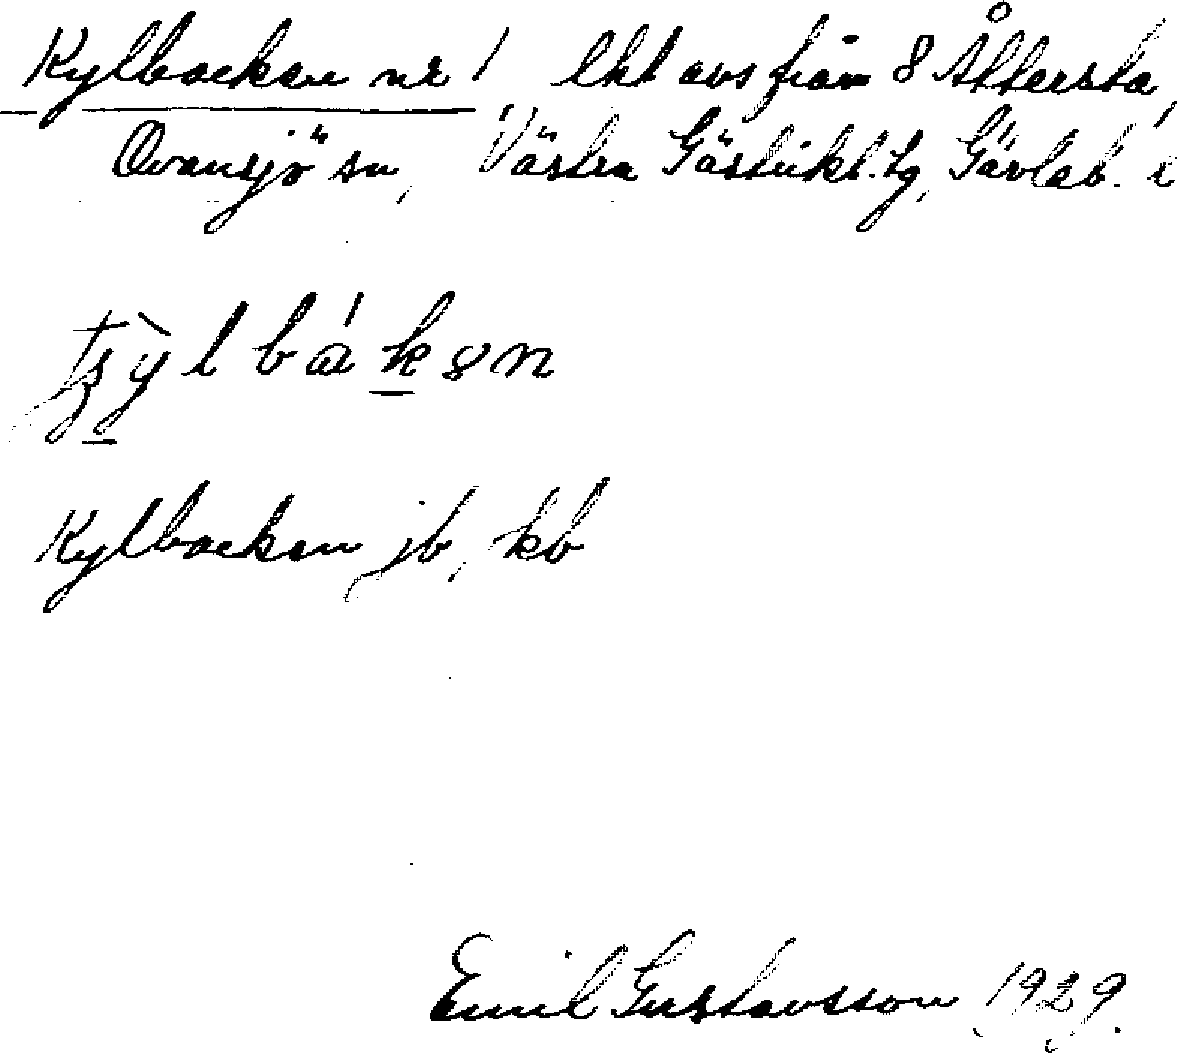 Kylbacken nr 1 lht avs från 8 Åttersta,
Ovansjö sn, Västra Gästrikl. tg, Gävleb. l
Kylbacken jb, kb
Emil Gustavsson 1929.